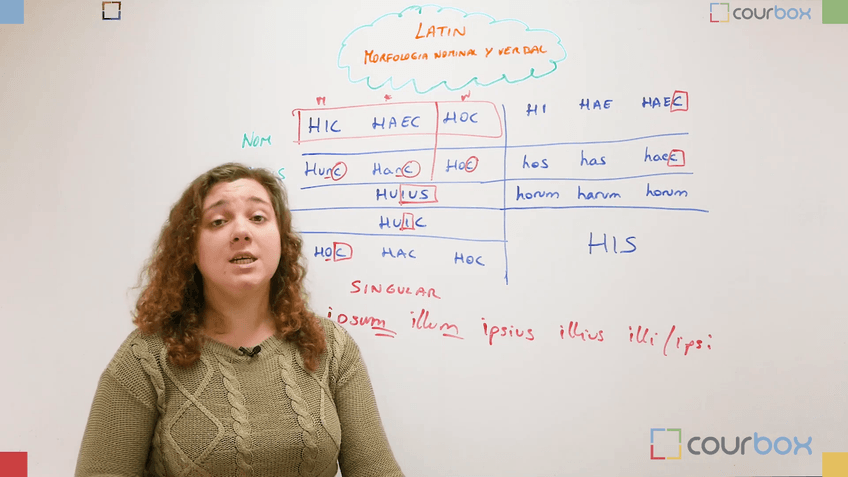 courbox
LATIN
MORFOLOGIA NOMINAL Y VERBAL
M F N
HIC HAEC HOC HI HAE HAEC
NOM
HUNC HANC HOC hos has haec
S
HUIUS horum harum horum
HUIC
HOC HAC HOC HIS
SINGULAR
ipsum illum ipsius illius illi/ipsi
courbox